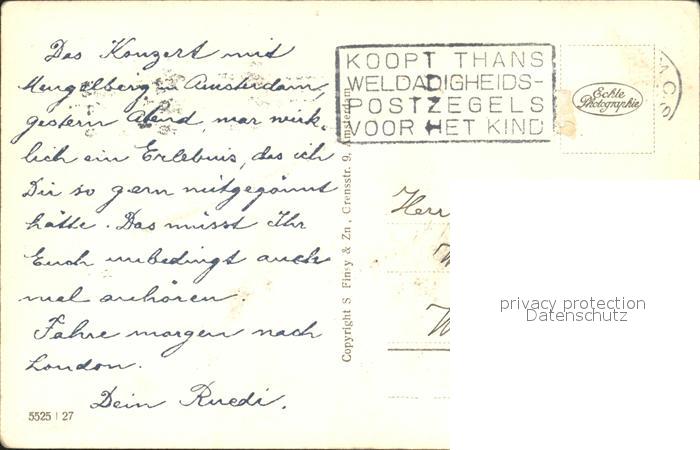 Das Konzert mit
Mengelberg in Amsterdam,
gestern Abend, war wirk-
lich ein Erlebnis, das ich
Dir so gern mitgegönnt
hätte. Das müsst Ihr
Euch unbedingt auch
mal anhören.
Fahre morgen nach
London.
Dein Ruedi.
5525 | 27
Copyright S. Finsy & Zn, Crensstr. 9, Amsterdam
KOOPT THANS
WELDADIGHEIDS-
POSTZEGELS
VOOR HET KIND
Echte
Photographie
Herr
privacy protection
Datenschutz